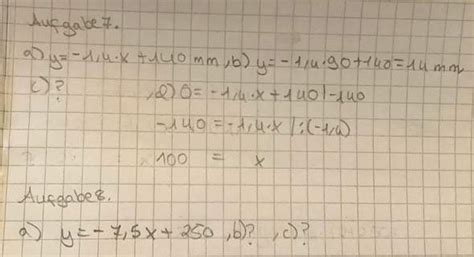 Aufgabe 7.
a) y = -1,4·x + 140 mm, b) y = -1,4·90+140 = 14 mm
c)? , d) 0 = -1,4·x + 140 |-140
-140 = -1,4·x |:(-1,4)
100 = x
Aufgabe 8.
a) y = -7,5x + 250, b)? , c)?